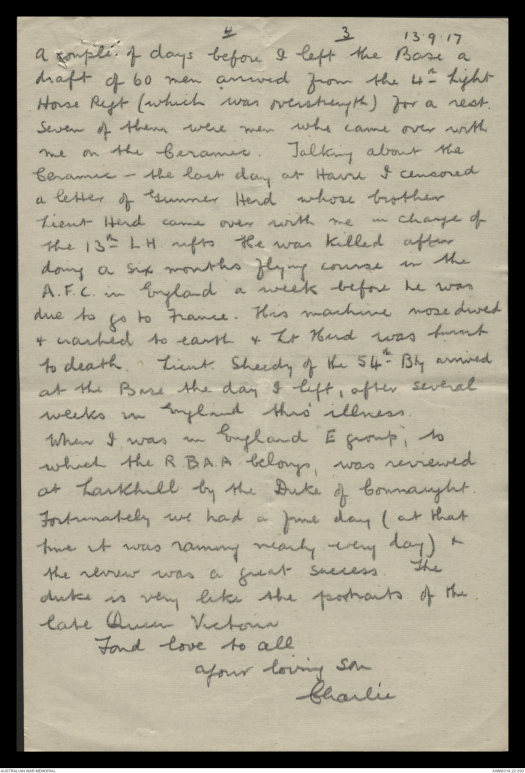 4 3 13.9.17
a couple of days before I left the Base a
draft of 60 men arrived from the 4th Light
Horse Regt (which was overstrength) for a rest.
Seven of them were men who came over with
me on the Ceramic. Talking about the
Ceramic - the last day at Havre I censored
a letter of Gunner Herd whose brother
Lieut Herd came over with me in charge of
the 13th L H rfts He was killed after
doing a six months flying course in the
A.F.C. in England a week before he was
due to go to France. His machine nose dived
& crashed to earth & Lt Herd was burnt
to death. Lieut. Sheedy of the 54th Bty arrived
at the Base the day I left, after several
weeks in England thro' illness.
When I was in England E group, to
which the R B A A belongs, was reviewed
at Larkhill by the Duke of Connaught.
Fortunately we had a fine day (at that
time it was raining nearly every day) &
the review was a great success The
duke is very like the portraits of the
late Queen Victoria
Fond love to all
Your loving son
Charlie
AUSTRALIAN WAR MEMORIAL